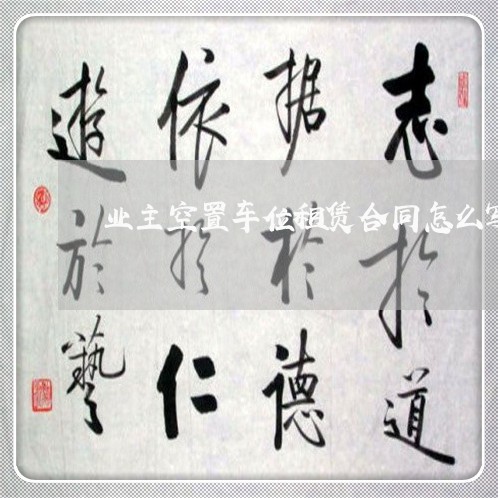 志於道
据於德
依於仁
遊於藝
业主空置车位租赁合同怎么写